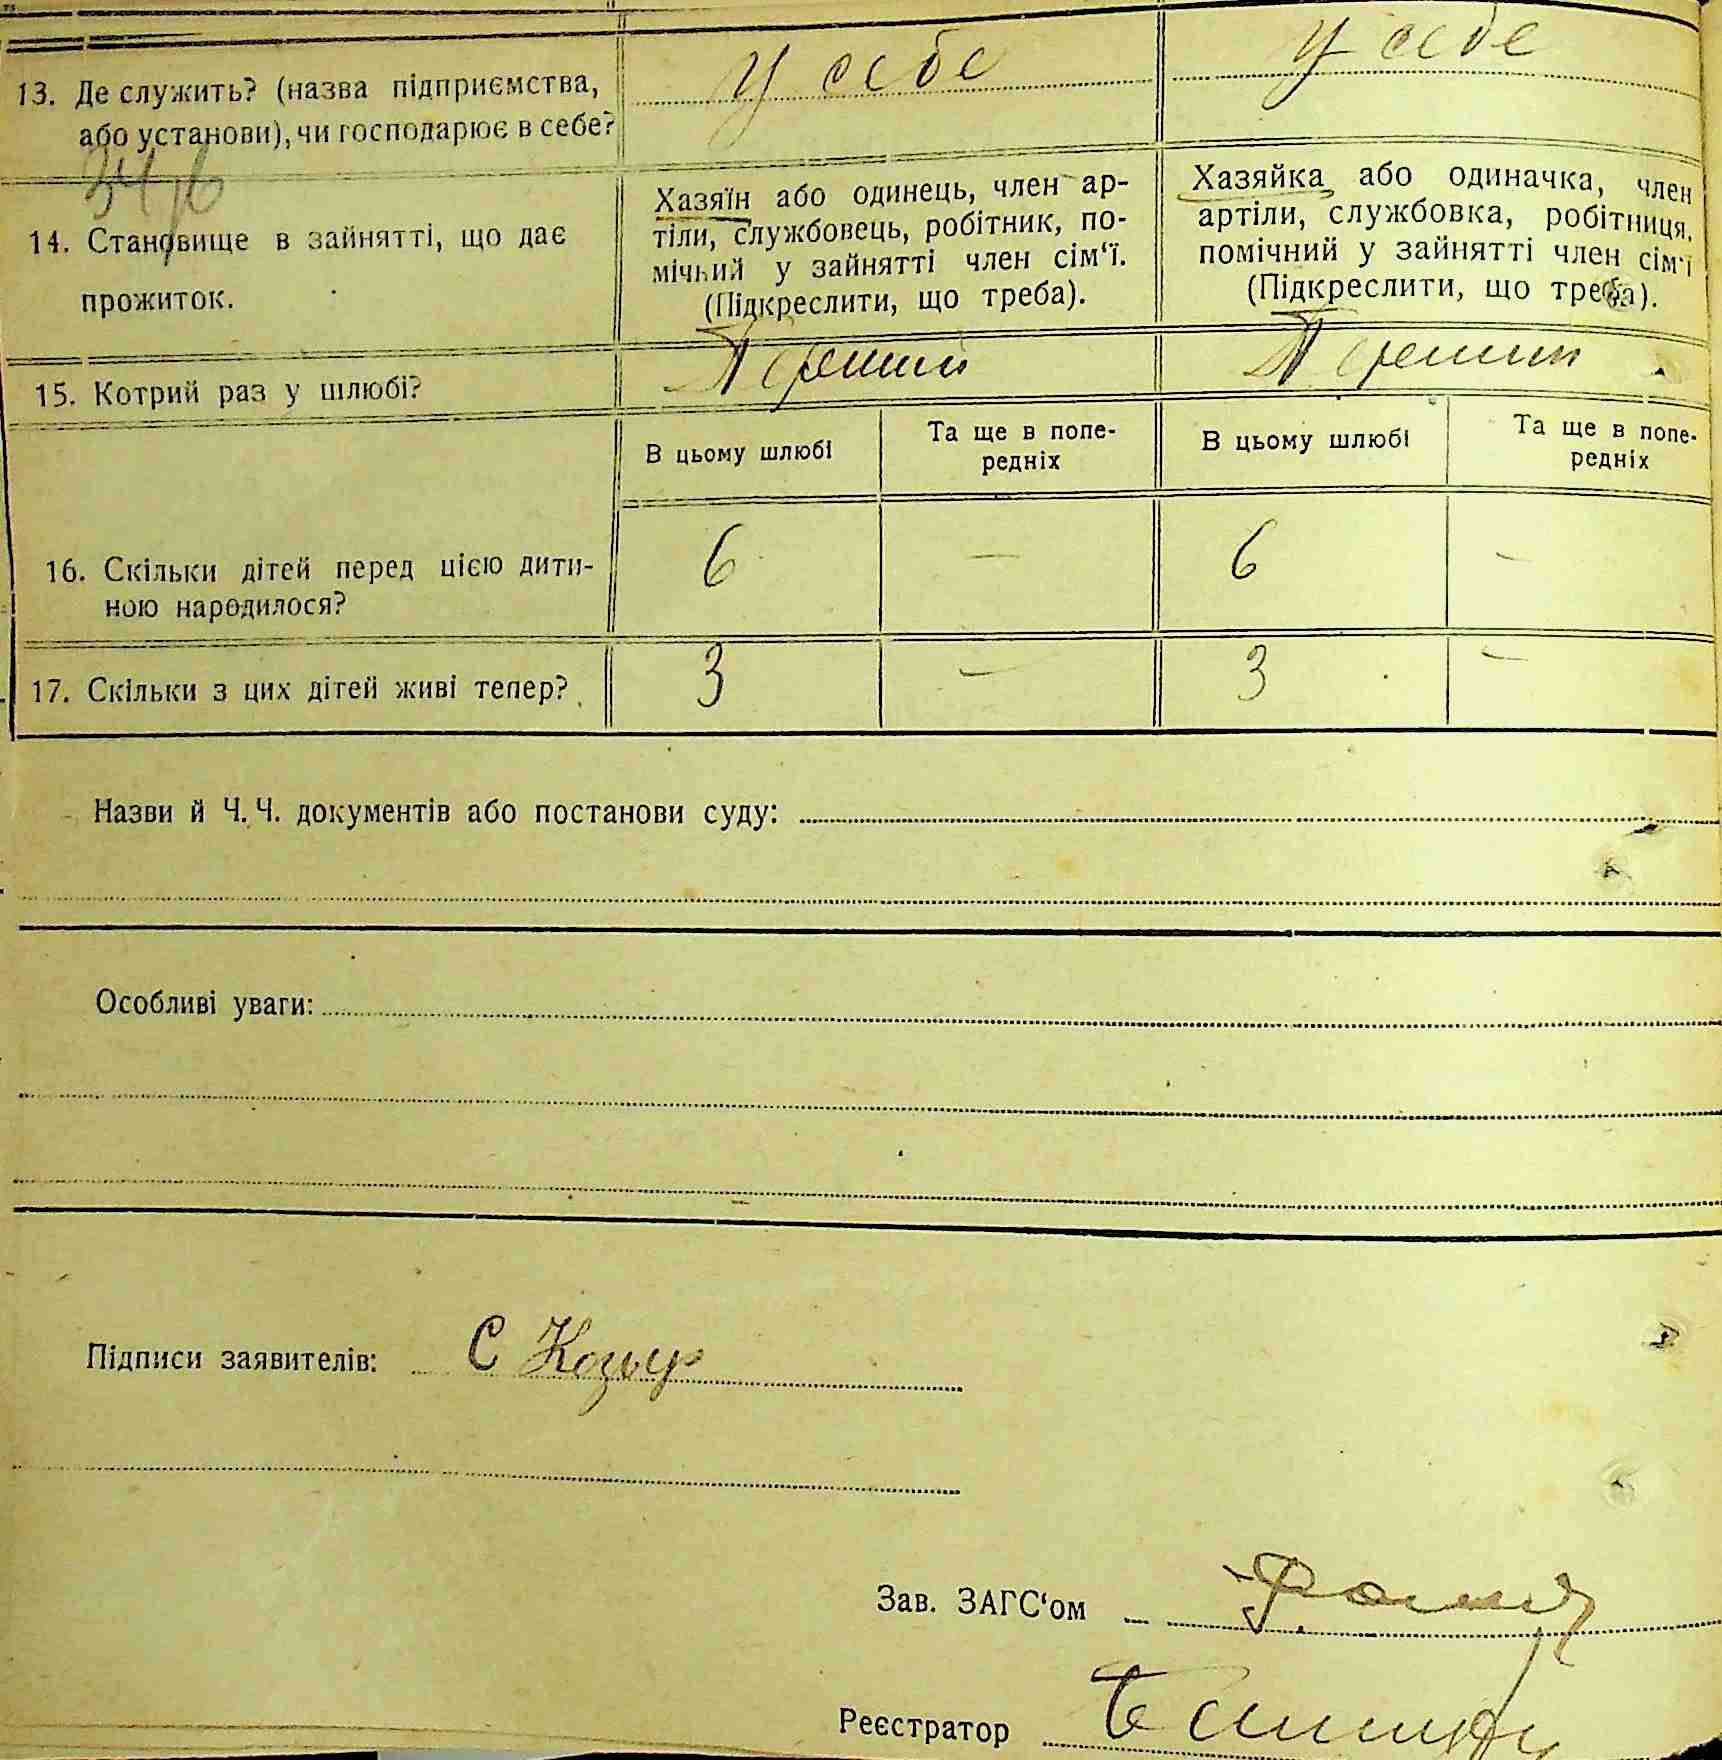 у себе у себе
13. Де служить? (назва підприємства,
або установи), чи господарює в себе?
14. Становище в зайнятті, що дає
прожиток.
Хазяїн або одинець, член ар-
тіли, службовець, робітник, по-
мічний у зайнятті член сім‘ї.
(Підкреслити, що треба).
Хазяйка або одиначка, член
артіли, службовка, робітниця,
помічний у зайнятті член сім‘ї
(Підкреслити, що треба).
15. Котрий раз у шлюбі? Перший Перший
В цьому шлюбі
Та ще в попе-
редніх
В цьому шлюбі
Та ще в попе-
редніх
16. Скільки дітей перед цією дити-
ною народилося?
6 — 6 —
17. Скільки з цих дітей живі тепер? 3 — 3 —
Назви й Ч. Ч. документів або постанови суду:
Особливі уваги:
Підписи заявителів: С Козыр
Зав. ЗАГС‘ом
Реєстратор